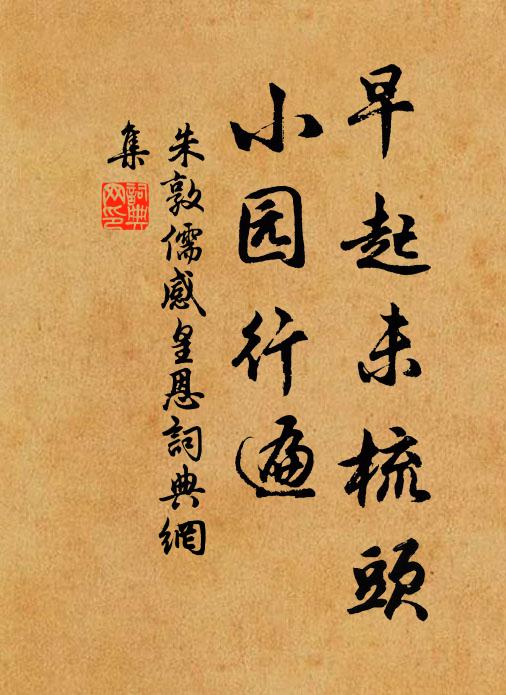 早起未梳頭
小园行遍
朱敦儒感皇恩詞典網
集
詞典
网印